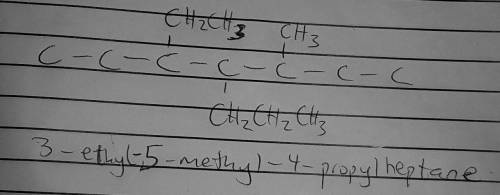 CH₂CH₃ CH₃
C – C – C – C – C – C – C
CH₂CH₂CH₃
3-ethyl-5-methyl-4-propylheptane.